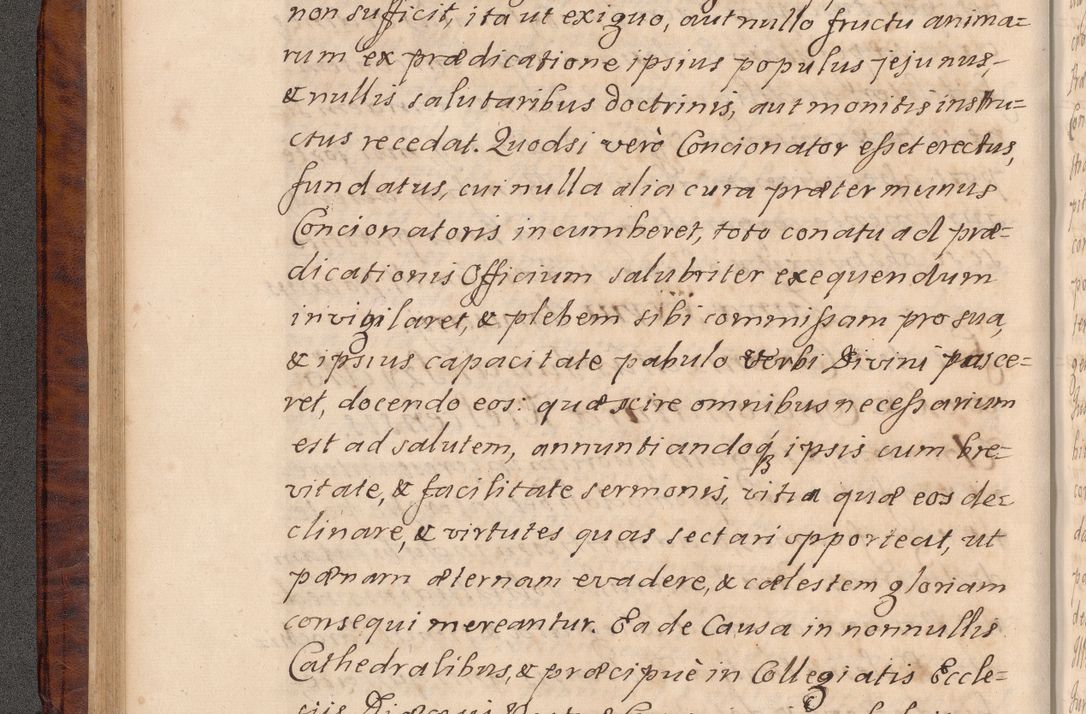 non sufficit, ita ut exiguo, aut nullo fructu anima=
rum ex prædicatione ipsius populus jejunus,
& nullis salutaribus doctrinis, aut monitis instru=
ctus recedat. Quodsi verò Concionator esset erectus,
fundatus, cui nulla alia cura præter munus
Concionatoris incumberet, toto conatu ad præ=
dicationis Officium salubriter exequendum
invigilaret, & plebem sibi commissam pro sua,
& ipsius capacitate pabulo verbi Divini pasce=
ret, docendo eos: quæ scire omnibus necessarium
est ad salutem, annuntiandoq́ ipsis cum bre=
vitate, & facilitate sermonis, vitia quæ eos de=
clinare, & virtutes quas sectari opporteat, ut
pænam æternam evadere, & cælestem gloriam
consequi mereantur. Ea de Causa in nonnullis
Cathedralibus, & præcipuè in Collegiatis Eccle=